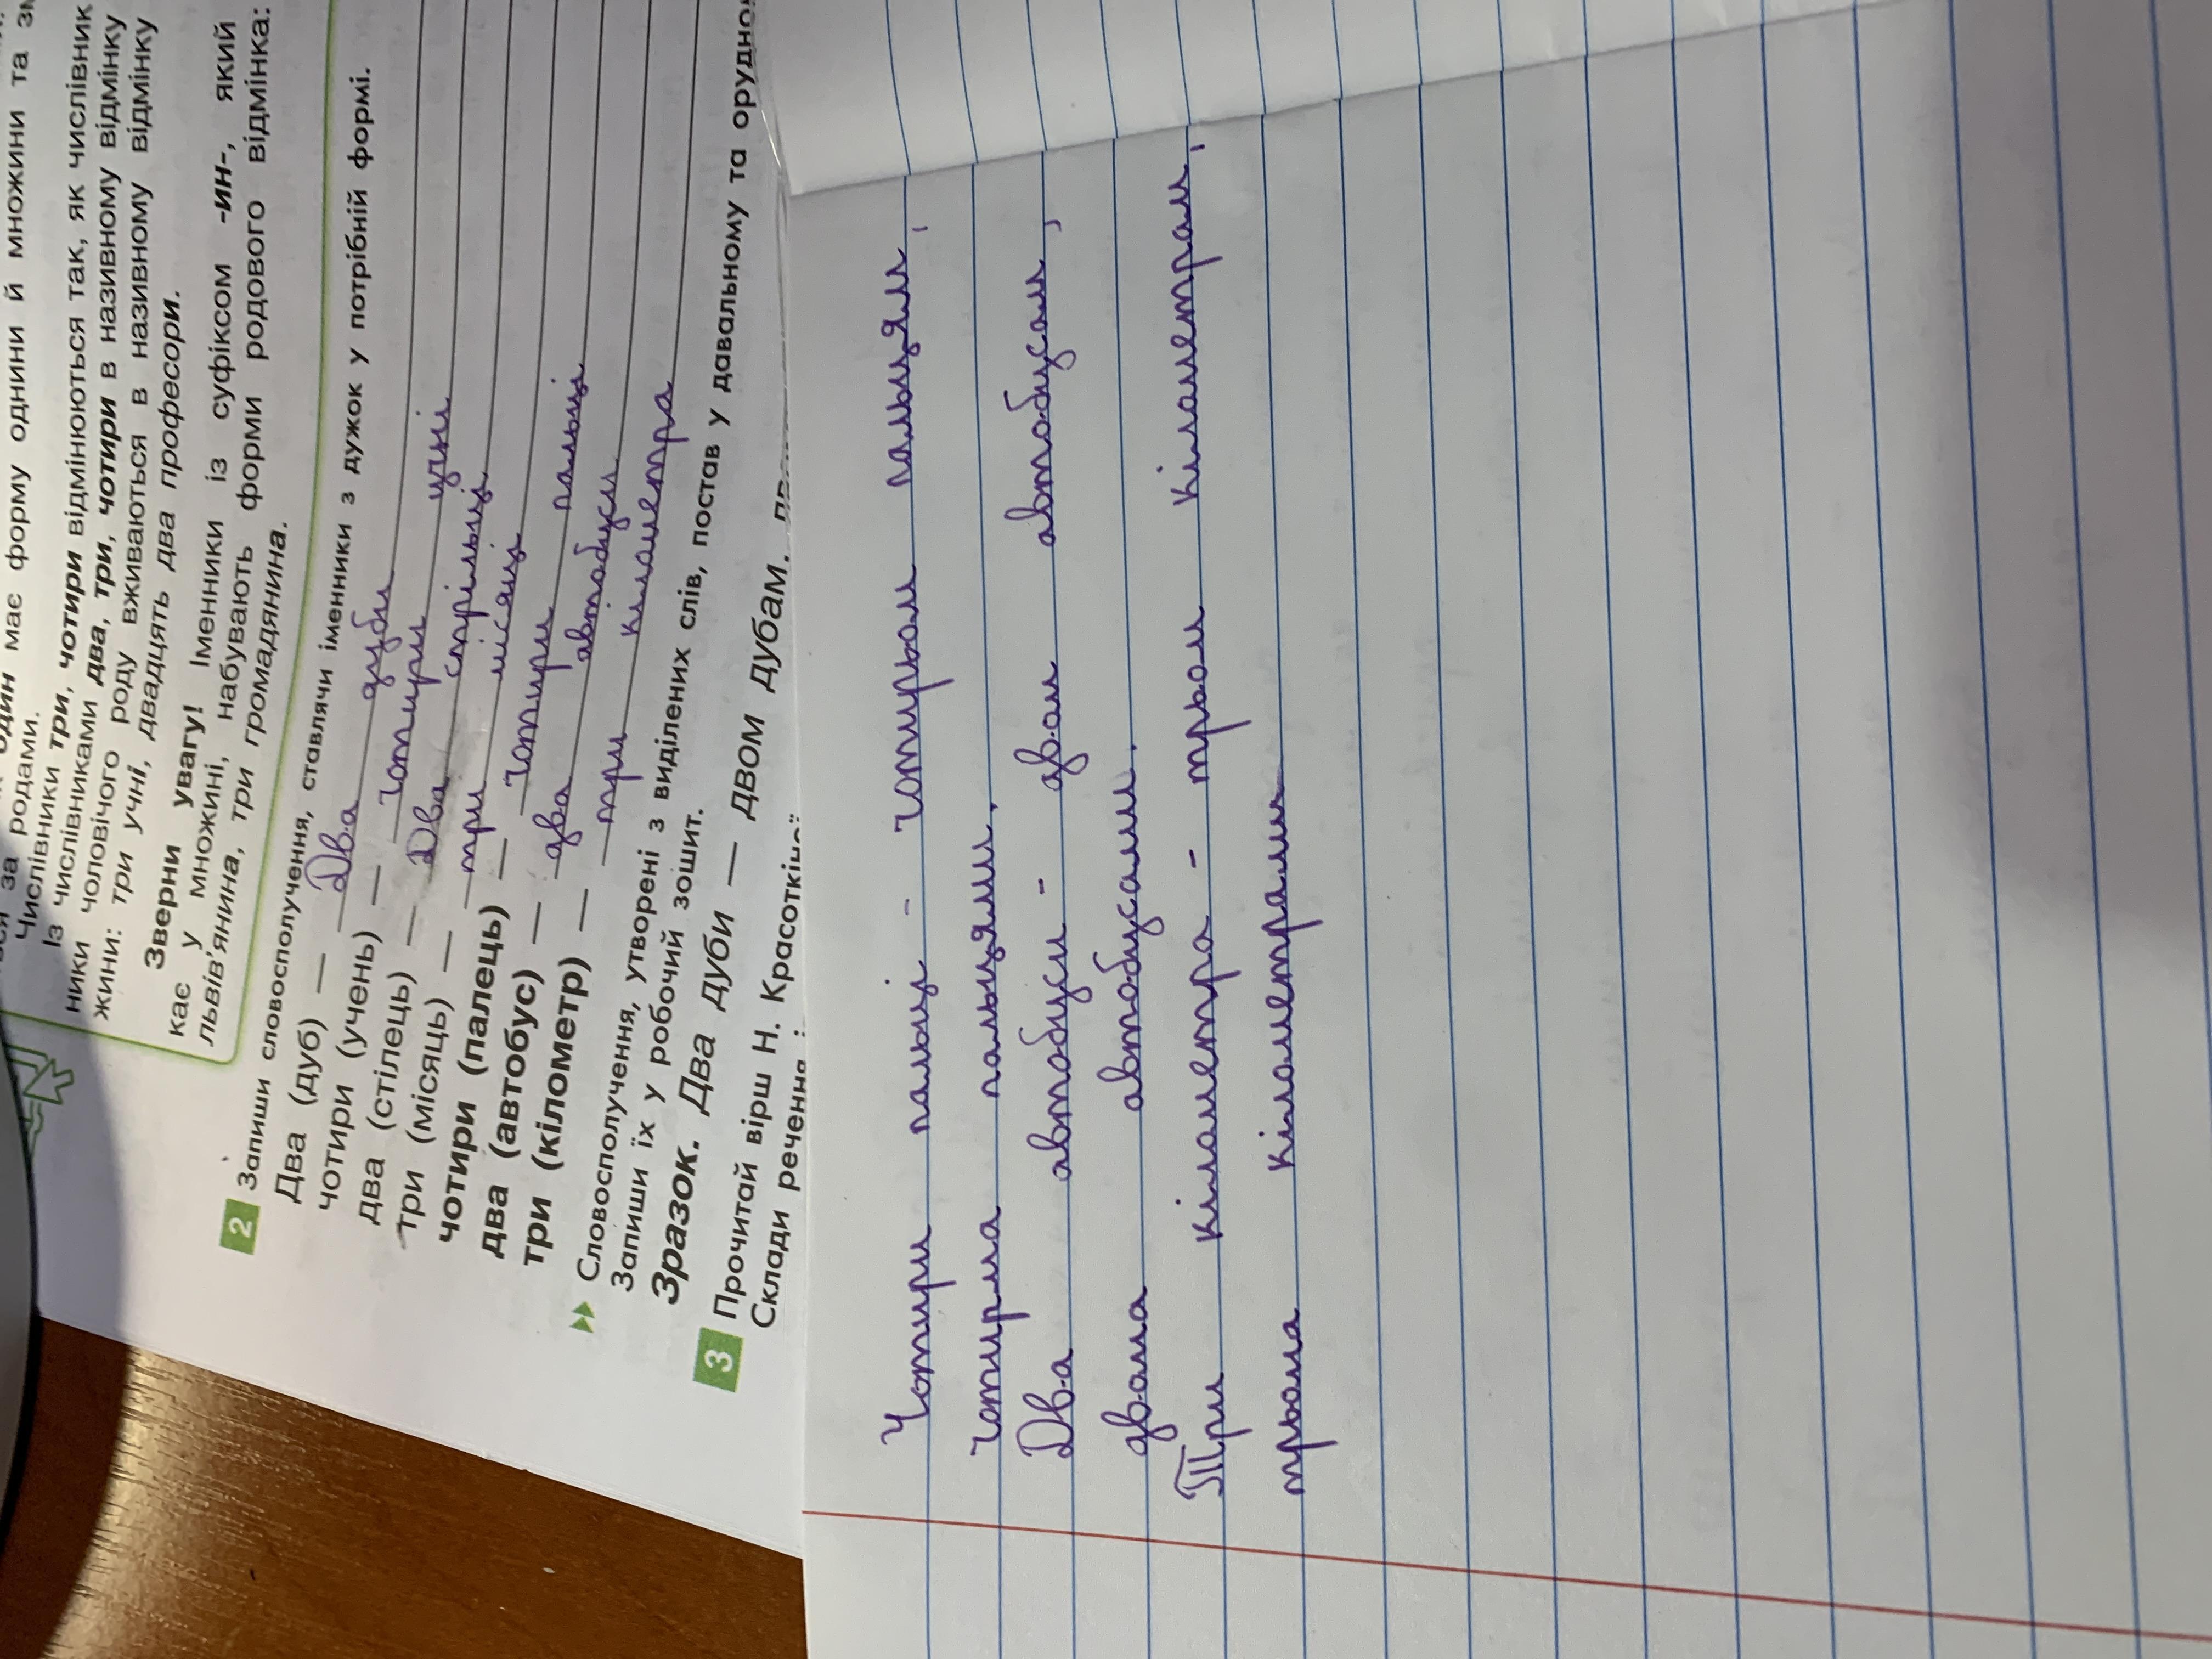 має форму однини й множини та
за родами.
Числівники три, чотири відмінюються так, як числівник
Із числівниками два, три, чотири в називному відмінку
ники чоловічого роду вживаються в називному відмінку
жини: три учні, двадцять два професори.
Зверни увагу! Іменники із суфіксом -ин-, який
кає у множині, набувають форми родового відмінка:
львів'янина, три громадянина.
2 Запиши словосполучення, ставлячи іменники з дужок у потрібній формі.
Два (дуб) — Два дуби
чотири (учень) — чотири учні
два (стілець) — Два стрільці
три (місяць) — три місяці
чотири (палець) — чотири пальці
два (автобус) — два автобуси
три (кілометр) — три кілометра
Словосполучення, утворені з виділених слів, постав у давальному та орудно
Запиши їх у робочий зошит.
Зразок. Два дуби — двом дубам,
3 Прочитай вірш Н. Красоткіної
Склади речення
Чотири пальці - чотирьом пальцям,
чотирма пальцями.
Два автобуси - двом автобусам,
двома автобусами.
Три кілометра - трьом кілометрам,
трьома кілометрами